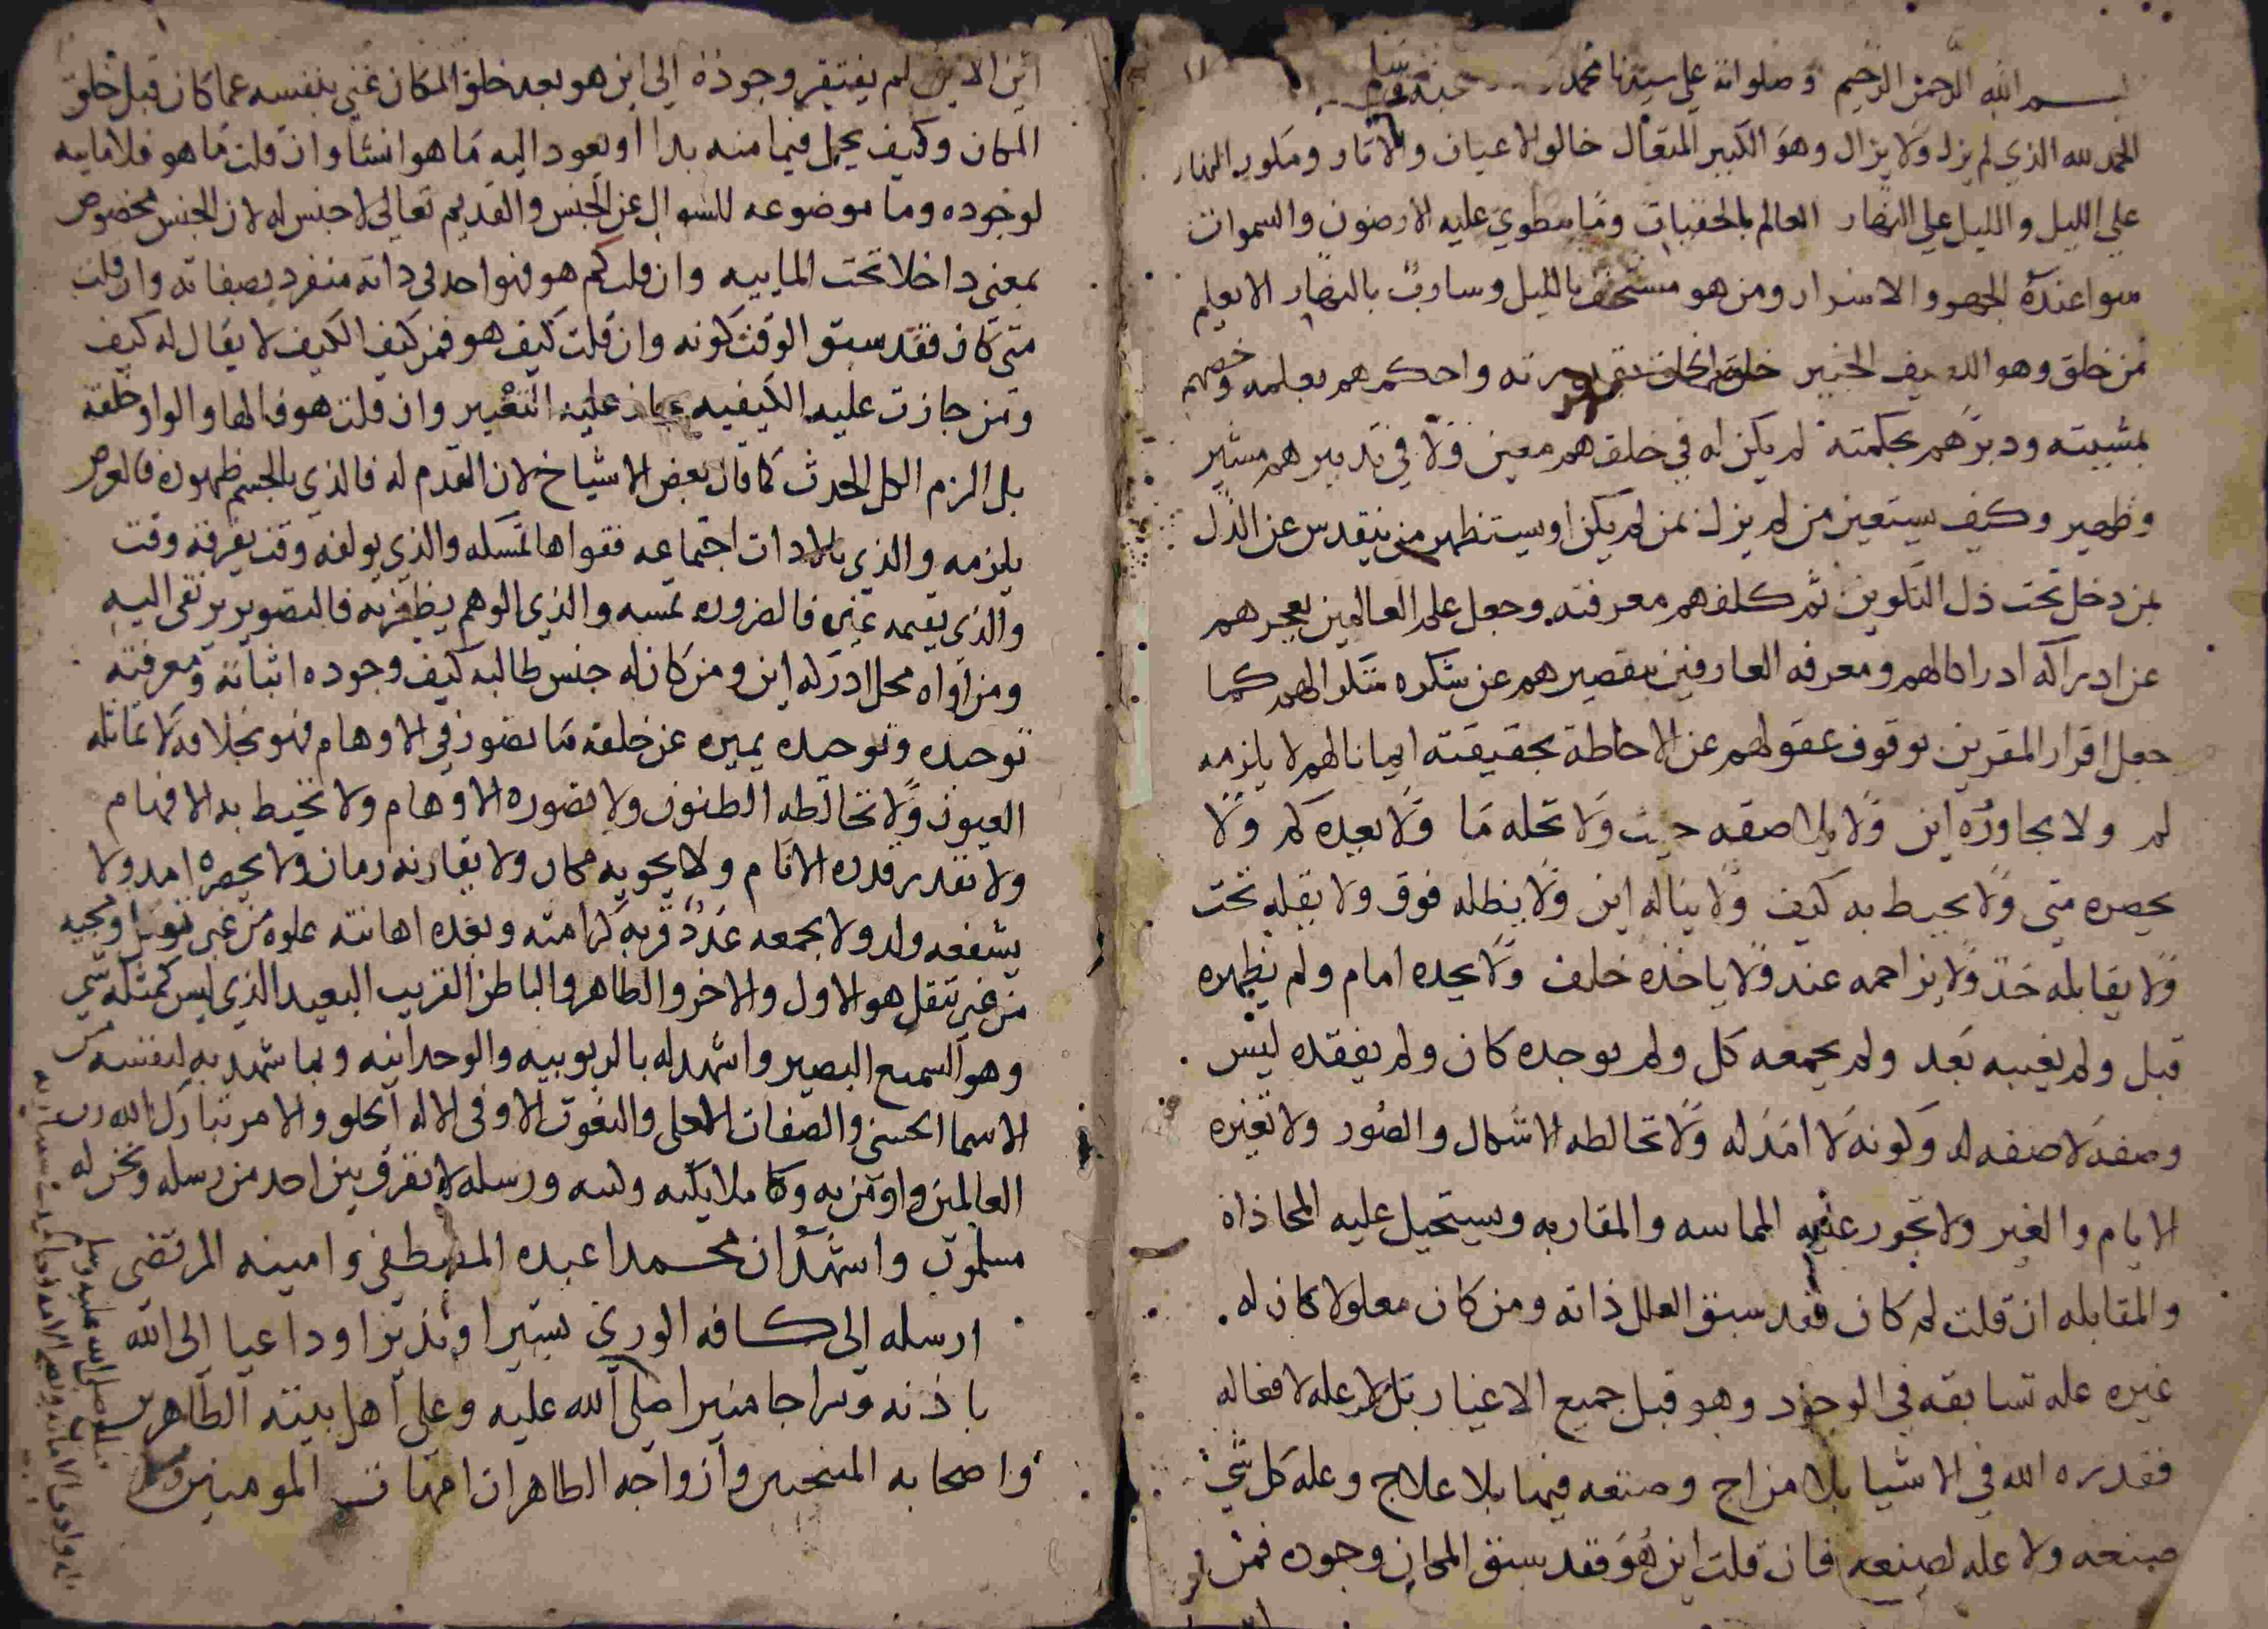 بسم الله الرحمن الرحيم وصلواته على سيدنا محمد
الحمد لله الذي لم يزل ولا يزال وهو الكبير المتعال خالق الاعيان والاثار ومكور النهار
على الليل والليل على النهار العالم بالخفيات وما منطوي عليه الارضون والسموات
سوا عنده الجهر والاسرار ومن هو مستخف بالليل وسارب بالنهار الا يعلم
من خلق وهو اللطيف الخبير خلق الخلق بقدرته واحكمهم بعلمه وخصهم
بمشيته ودبرهم بحكمته لم يكن له في خلقهم معين ولا في تدبيرهم مشير
وظهير وكيف يستعين من لم يزل بمن لم يكن او يستظهر من يتقدس عن الذل
بمن دخل تحت ذل التكوين ثم كلفهم معرفته وجعل علم العالمين بعجزهم
عن ادراكه ادراكا لهم ومعرفه العارفين بتقصيرهم عن شكره شكرا لهم كما
جعل اقرار المقرين بوقوف عقولهم عن الاحاطة بحقيقته ايمانا لهم لا يلزمه
لم ولا يجاوزه اين ولا يلاصقه حيث ولا تحله ما ولا يعده كم ولا
يحصره متى ولا يحيط به كيف ولا يناله اين ولا يظله فوق ولا يقله تحت
ولا يقابله حد ولا يزاحمه عند ولا ياخذه خلف ولا يحده امام ولم يظهره
قبل ولم يغيبه بعد ولم يجمعه كل ولم يوجده كان ولم يفقده ليس
وصفه لا صفه له وكونه لا امد له ولا تخالطه الاشكال والصور ولا تغيره
الايام والغير ولا تجوز عليه المماسه والمقاربه ويستحيل عليه المحاذاة
والمقابله ان قلت لم كان فقد سبق العلل ذاته ومن كان معلولا كان له
غيره عله تسابقه في الوجود وهو قبل جميع الاغيار بل لا عله لافعاله
فقدره الله في الاشيا بلا مزاج وصنعه فيها بلا علاج وعله كل شي
صنعه ولا عله لصنعه فان قلت اين هو فقد سبق المكان وجوده فمن
اين الاين لم يفتقر وجوده الى اين هو بعد خلق المكان غني بنفسه عما كان قبل خلق
المكان وكيف يحل فيما منه بدا او يعود اليه ما هو انشا وان قلت ما هو فلا مايه
لوجوده وما موضوعه للسوال عن الجنس والقديم تعالى لا جنس له لان الجنس مخصوص
بمعنى داخلا تحت المايه وان قلت كم هو فهو احد في ذاته منفرد بصفاته وان قلت
متى كان فقد سبق الوقت كونه وان قلت كيف هو فمن كيف الكيف لا يقال له كيف
ومن جازت عليه الكيفيه جاز عليه التغيير وان قلت هو فالها والواو خلقه
بل الزم الكل الحدث كما قال بعض الاشياخ لان القدم له فالذي بالجسم ظهوره فالعرض
يلزمه والذي بالادات اجتماعه فقواها تمسكه والذي يولفه وقت يفرقه وقت
والذي يقيمه غيره فالضروره تمسه والذي الوهم يظفر به فالتصوير يرتقى اليه
ومن اواه محل ادركه اين ومن كان له جنس طالبه كيف وجوده اثباته ومعرفته
توحيده وتوحيده يميزه عن خلقه ما تصور في الاوهام فهو بخلافه لا تماثله
العيون ولا تخالطه الظنون ولا تصوره الاوهام ولا تحيط به الافهام
ولا تقدر قدره الانام ولا يحويه مكان ولا يقارنه زمان ولا يحصره امد ولا
يشفعه ولد ولا يجمعه عدد قربه كرامته وبعده اهانته علوه من غير توقل ومجيه
من غير تنقل هو الاول والاخر والظاهر والباطن القريب البعيد الذي ليس كمثله شي
وهو السميع البصير واشهد له بالربوبيه والوحدانيه وبما شهد به لنفسه من
الاسما الحسنى والصفات الاعلى والنعوت الاوفى الا له الخلق والامر تبارك الله رب
العالمين واومن به وملايكته وكتبه ورسله لا نفرق بين احد من رسله ونحن له
مسلمون واشهد ان محمدا عبده المصطفى وامينه المرتضى
ارسله الى كافه الورى بشيرا ونذيرا وداعيا الى الله
باذنه وسراجا منيرا صلى الله عليه وعلى اهل بيته الطاهرين
واصحابه المنتخبين وازواجه الطاهرات امهات المومنين